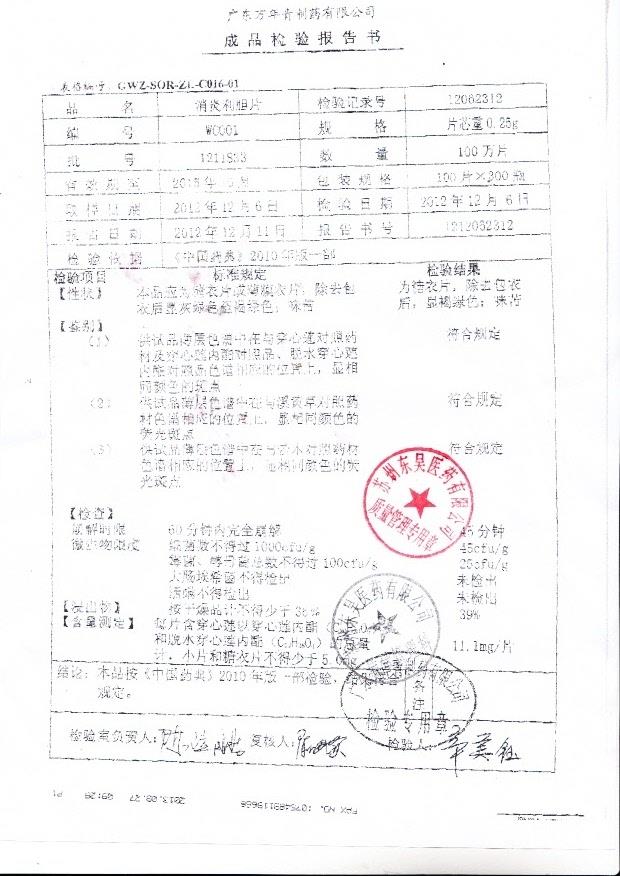 广东万年青制药有限公司
成品检验报告书
表格编号: GWZ-SOR-ZL-C016-01
品 名 消炎利胆片 检验记录号 12062312
编 号 WC001 规 格 片芯重0.25g
批 号 1211S33 数 量 100万片
有效期至 包装规格 100片×300瓶
取样日期 2012年12月6日 检验日期 2012年12月6日
报告日期 2012年12月11日 报告书号 1212062312
检验依据 《中国药典》2010年版一部
检验项目 标准规定 检验结果
【性状】 本品应为糖衣片或薄膜衣片，除去包 为糖衣片，除去包衣
衣后显灰绿色至褐绿色；味苦 后，显褐绿色；味苦
【鉴别】
(1) 供试品薄层色谱中在与穿心莲对照药 符合规定
材及穿心莲内酯对照品、脱水穿心莲
内酯对照品色谱相应的位置上，显相
同颜色的斑点
(2) 供试品薄层色谱中在与溪黄草对照药 符合规定
材色谱相应的位置上，显相同颜色的
荧光斑点
(3) 供试品薄层色谱中在与苦木对照药材 符合规定
色谱相应的位置上，显相同颜色的荧
光斑点
【检查】
崩解时限 60分钟内完全崩解 45分钟
微生物限度 细菌数不得过1000cfu/g 45cfu/g
霉菌、酵母菌总数不得过100cfu/g 25cfu/g
大肠埃希菌不得检出 未检出
活螨不得检出 未检出
【浸出物】 按干燥品计不得少于36% 39%
【含量测定】 每片含穿心莲以穿心莲内酯
和脱水穿心莲内酯 总量 11.1mg/片
计，小片和糖衣片不得少于5.0mg
结论：本品按《中国药典》2010年版一部检验，结果符合
规定。
检验室负责人： 复核人： 检验人：
苏州东吴医药有限公司
质量管理专用章
东吴医药有限公司
制药有限公司
检验专用章
2013.09.27 09:28 P1
FAX NO. :075488119668